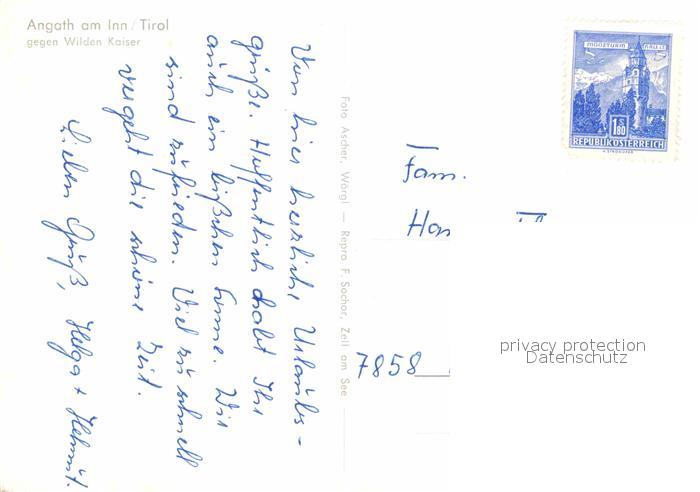 Angath am Inn / Tirol
gegen Wilden Kaiser
Von hier herzliche Urlaubs-
grüße. Hoffentlich habt Ihr
auch ein bißchen Sonne. Wir
sind zufrieden. Viel zu schnell
vergeht die schöne Zeit.
Lieben Gruß, Helga + Helmut.
Foto Ascher, Wörgl — Repro F. Sochor, Zell am See
MÜNZTURM HALL i.T.
S
1.80
REPUBLIK ÖSTERREICH
Fam.
7858
privacy protection
Datenschutz